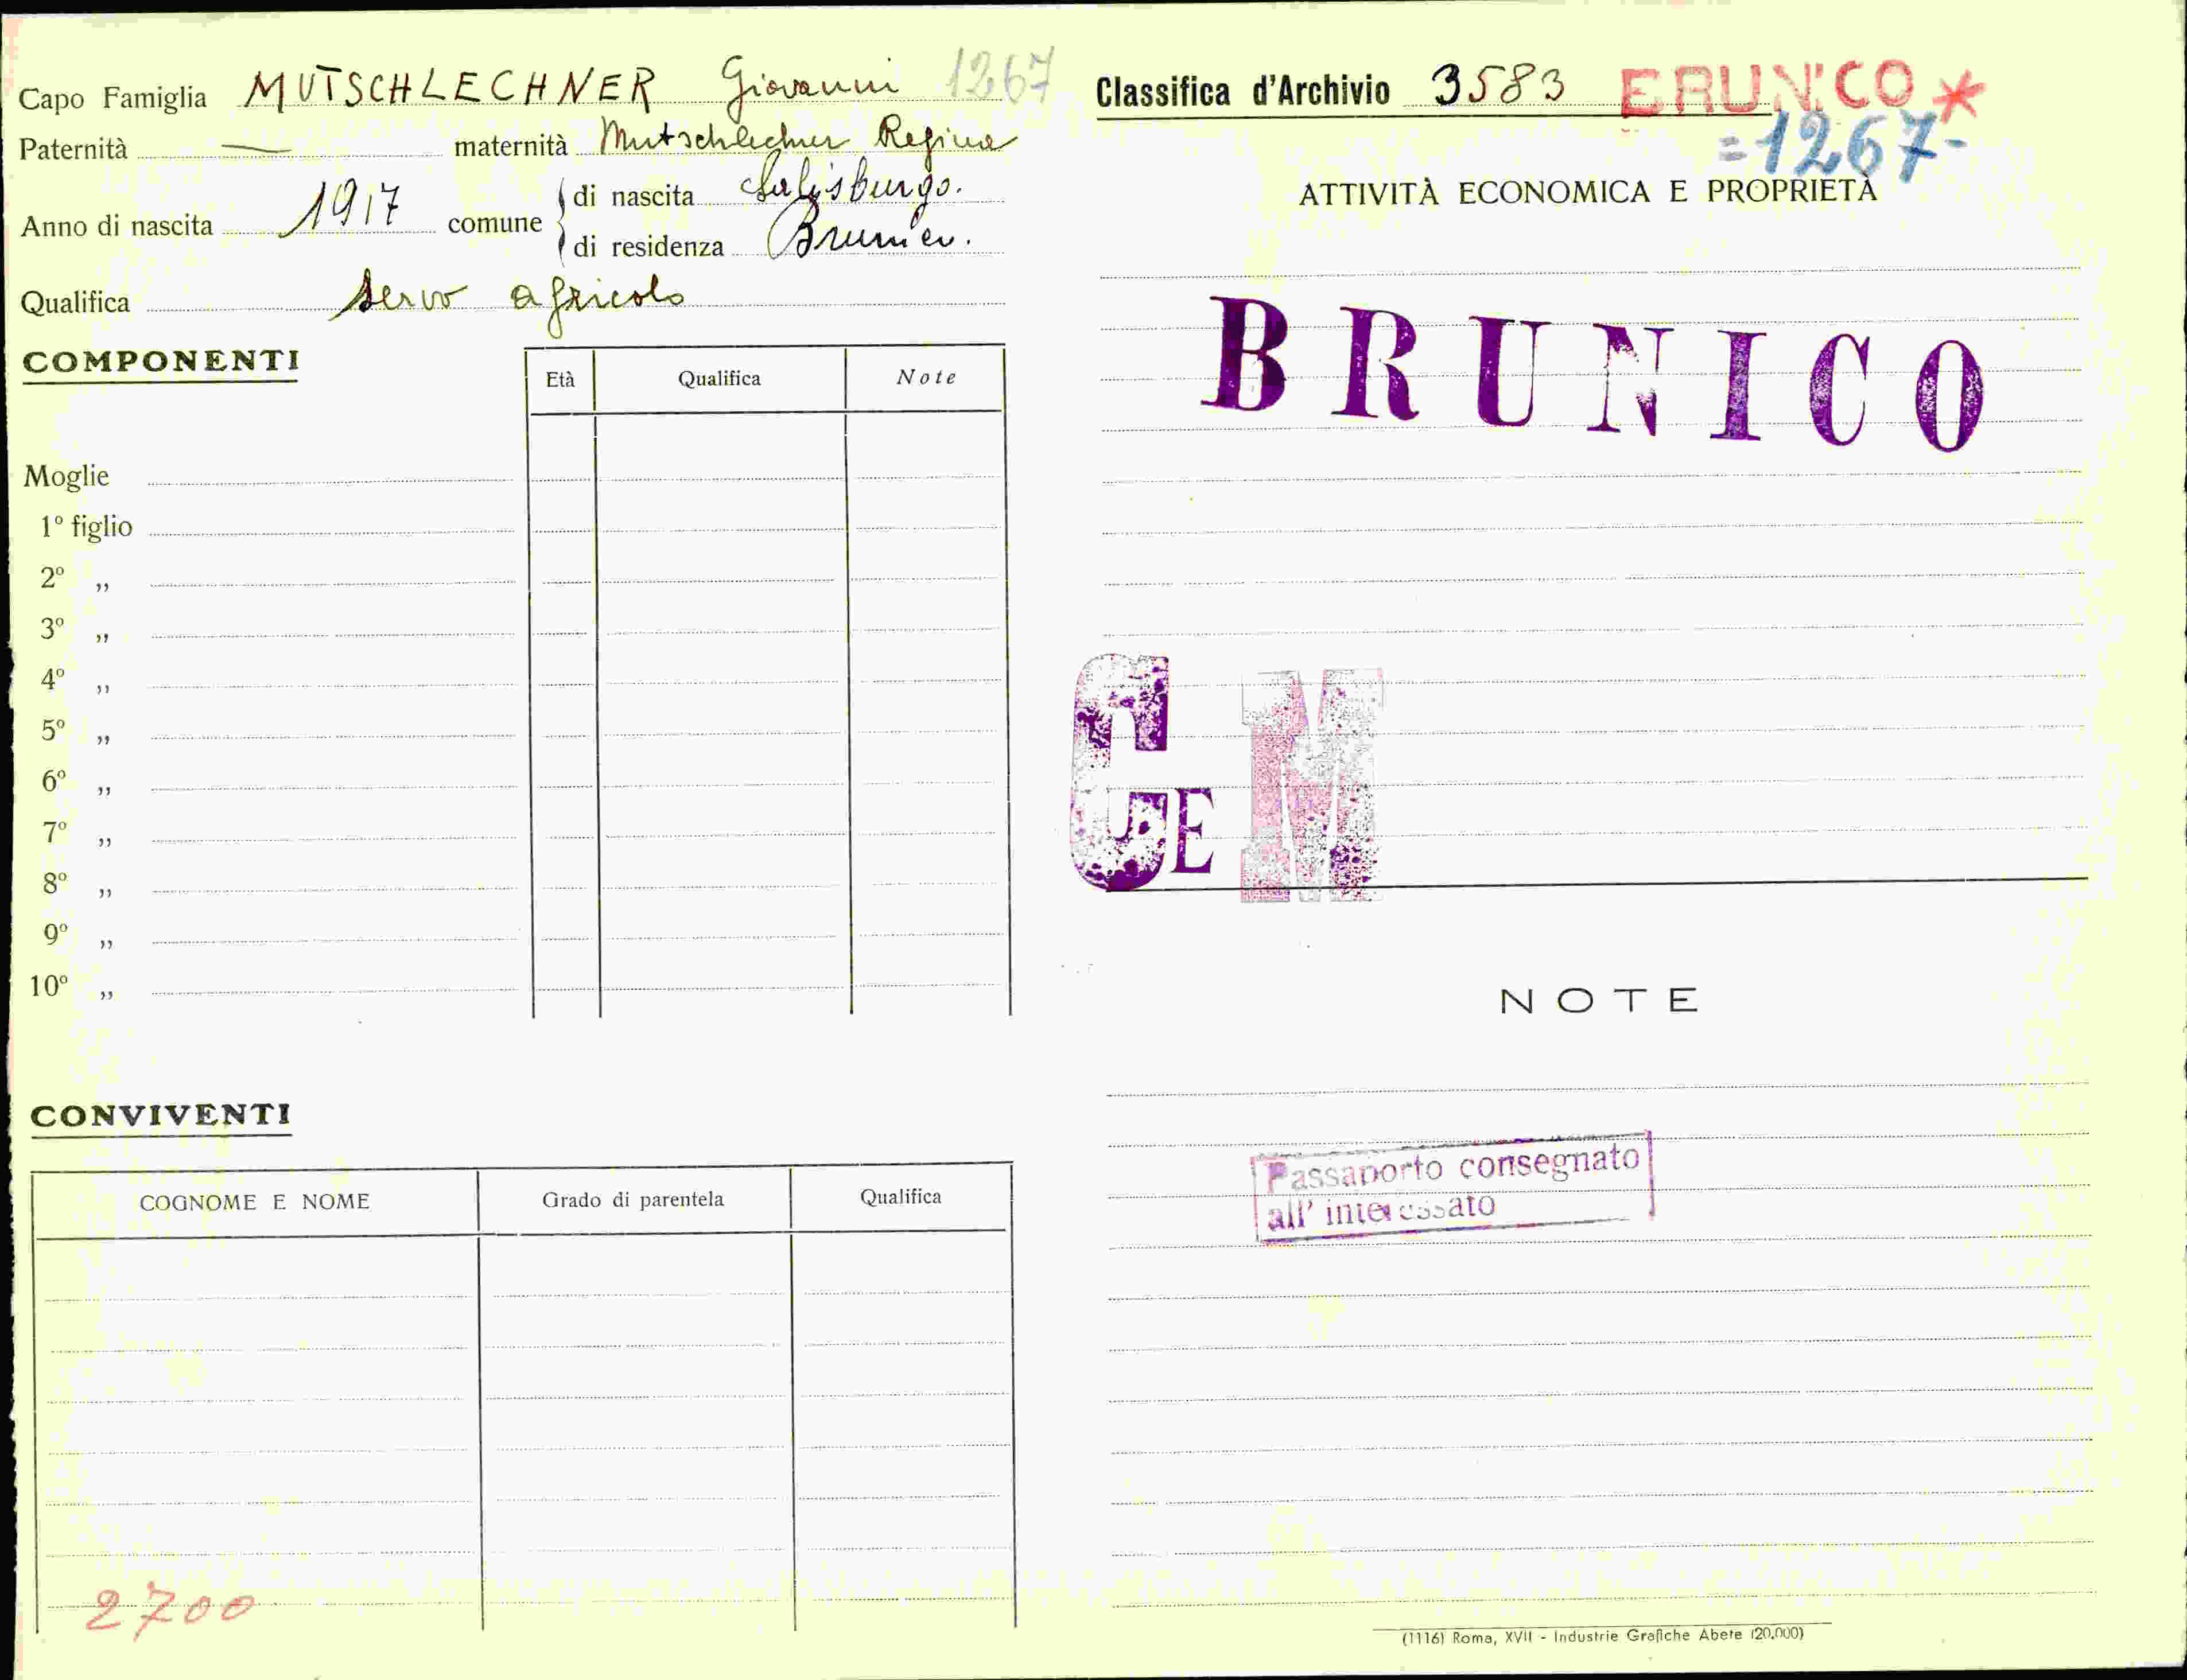 Capo Famiglia MUTSCHLECHNER Giovanni 1267
Paternità — maternità Mutschlechner Regina
Anno di nascita 1917 comune di nascita Salisburgo.
di residenza Brunico.
Qualifica servo agricolo
COMPONENTI
Età Qualifica Note
Moglie
1º figlio
2º „
3º „
4º „
5º „
6º „
7º „
8º „
9º „
10º „
CONVIVENTI
COGNOME E NOME Grado di parentela Qualifica
2700
Classifica d'Archivio 3583 BRUNICO *
=1267-
ATTIVITÀ ECONOMICA E PROPRIETÀ
BRUNICO
GE M
NOTE
Passaporto consegnato
all' interessato
(1116) Roma, XVII - Industrie Grafiche Abete (20.000)